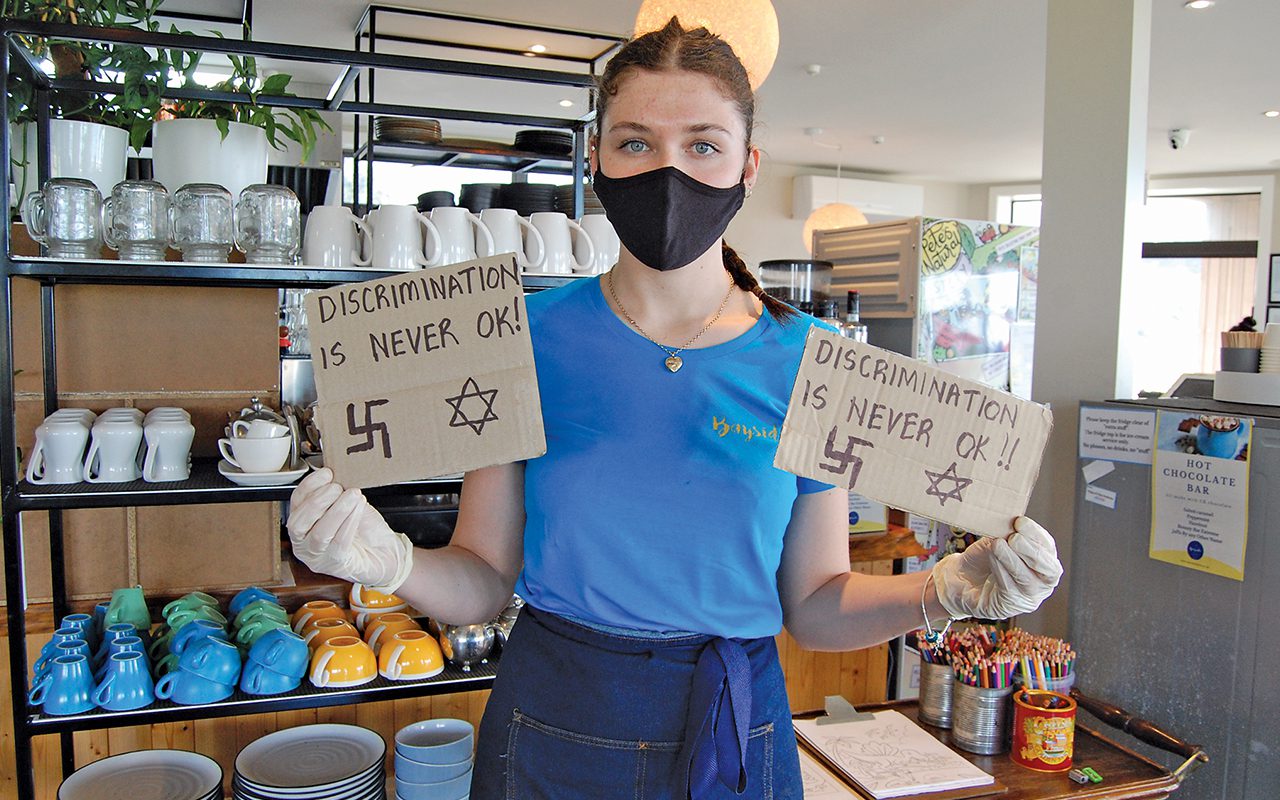 DISCRIMINATION
IS NEVER OK!
DISCRIMINATION
IS NEVER OK!!
Bayside
Pete's
Natural
Please keep the fridge clear of
HOT
CHOCOLATE
BAR
Salted caramel
Peppermint
Hazelnut